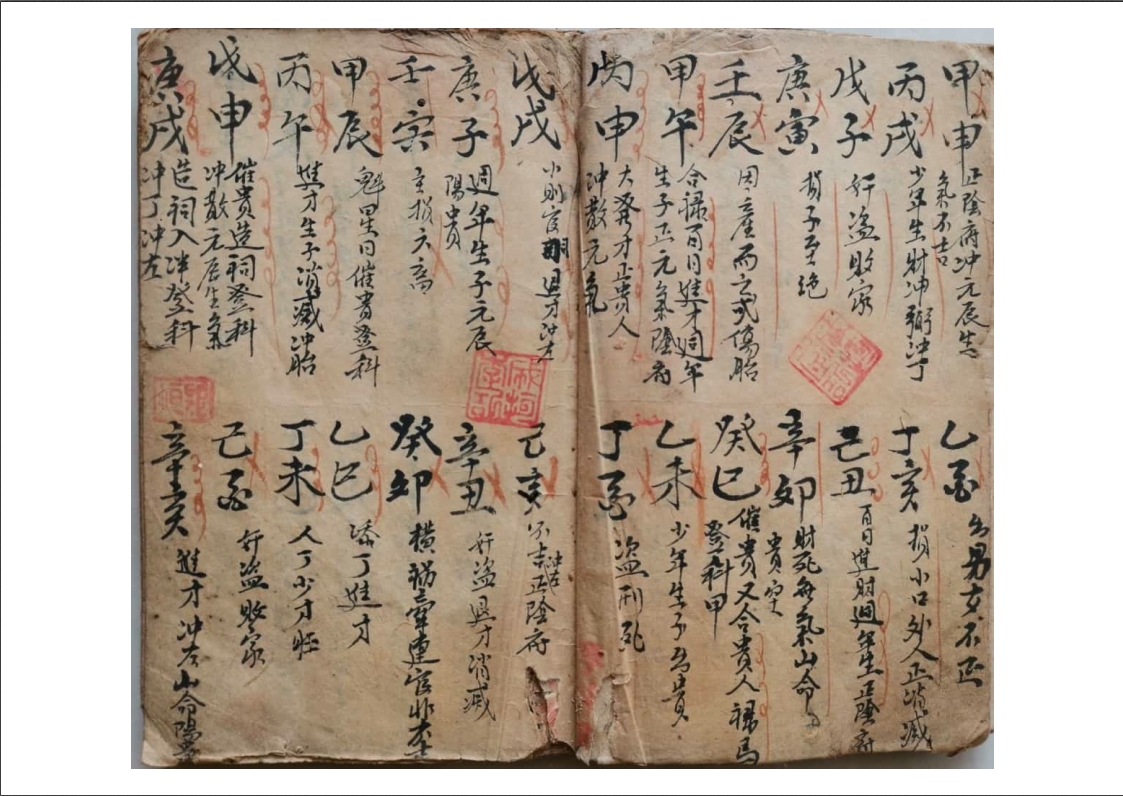 甲申
正陰府冲元辰生
氣不吉
丙戌
少年生財冲
戊子
奸盗敗家
庚寅
損子至絶
壬辰
因産而亡或傷胎
甲午
合禄百日進才週年
生子正元氣陰府
丙申
大發才正貴人
冲散元氣
乙酉
男女不正
丁亥
損小口外人正消滅
己丑
百日進財週年生正陰府
辛卯
財死每氣山命
貴
癸巳
催貴又合貴人禄馬
登科甲
乙未
少年生子為貴
丁酉
盗刑死
戊戌
小則官
庚子
週年生子元辰
陽貴
壬寅
主損六畜
甲辰
魁星日催貴登科
丙午
進才生子消滅冲胎
戊申
催貴造祠登科
冲散元辰生氣
庚戌
造祠入泮登科
冲丁冲左
己亥
不吉正陰府
辛丑
奸盗退才消滅
癸卯
横禍牽連官非
乙巳
添丁進才
丁未
人丁少才旺
己酉
奸盗敗家
辛亥
進才冲左山命陽貴